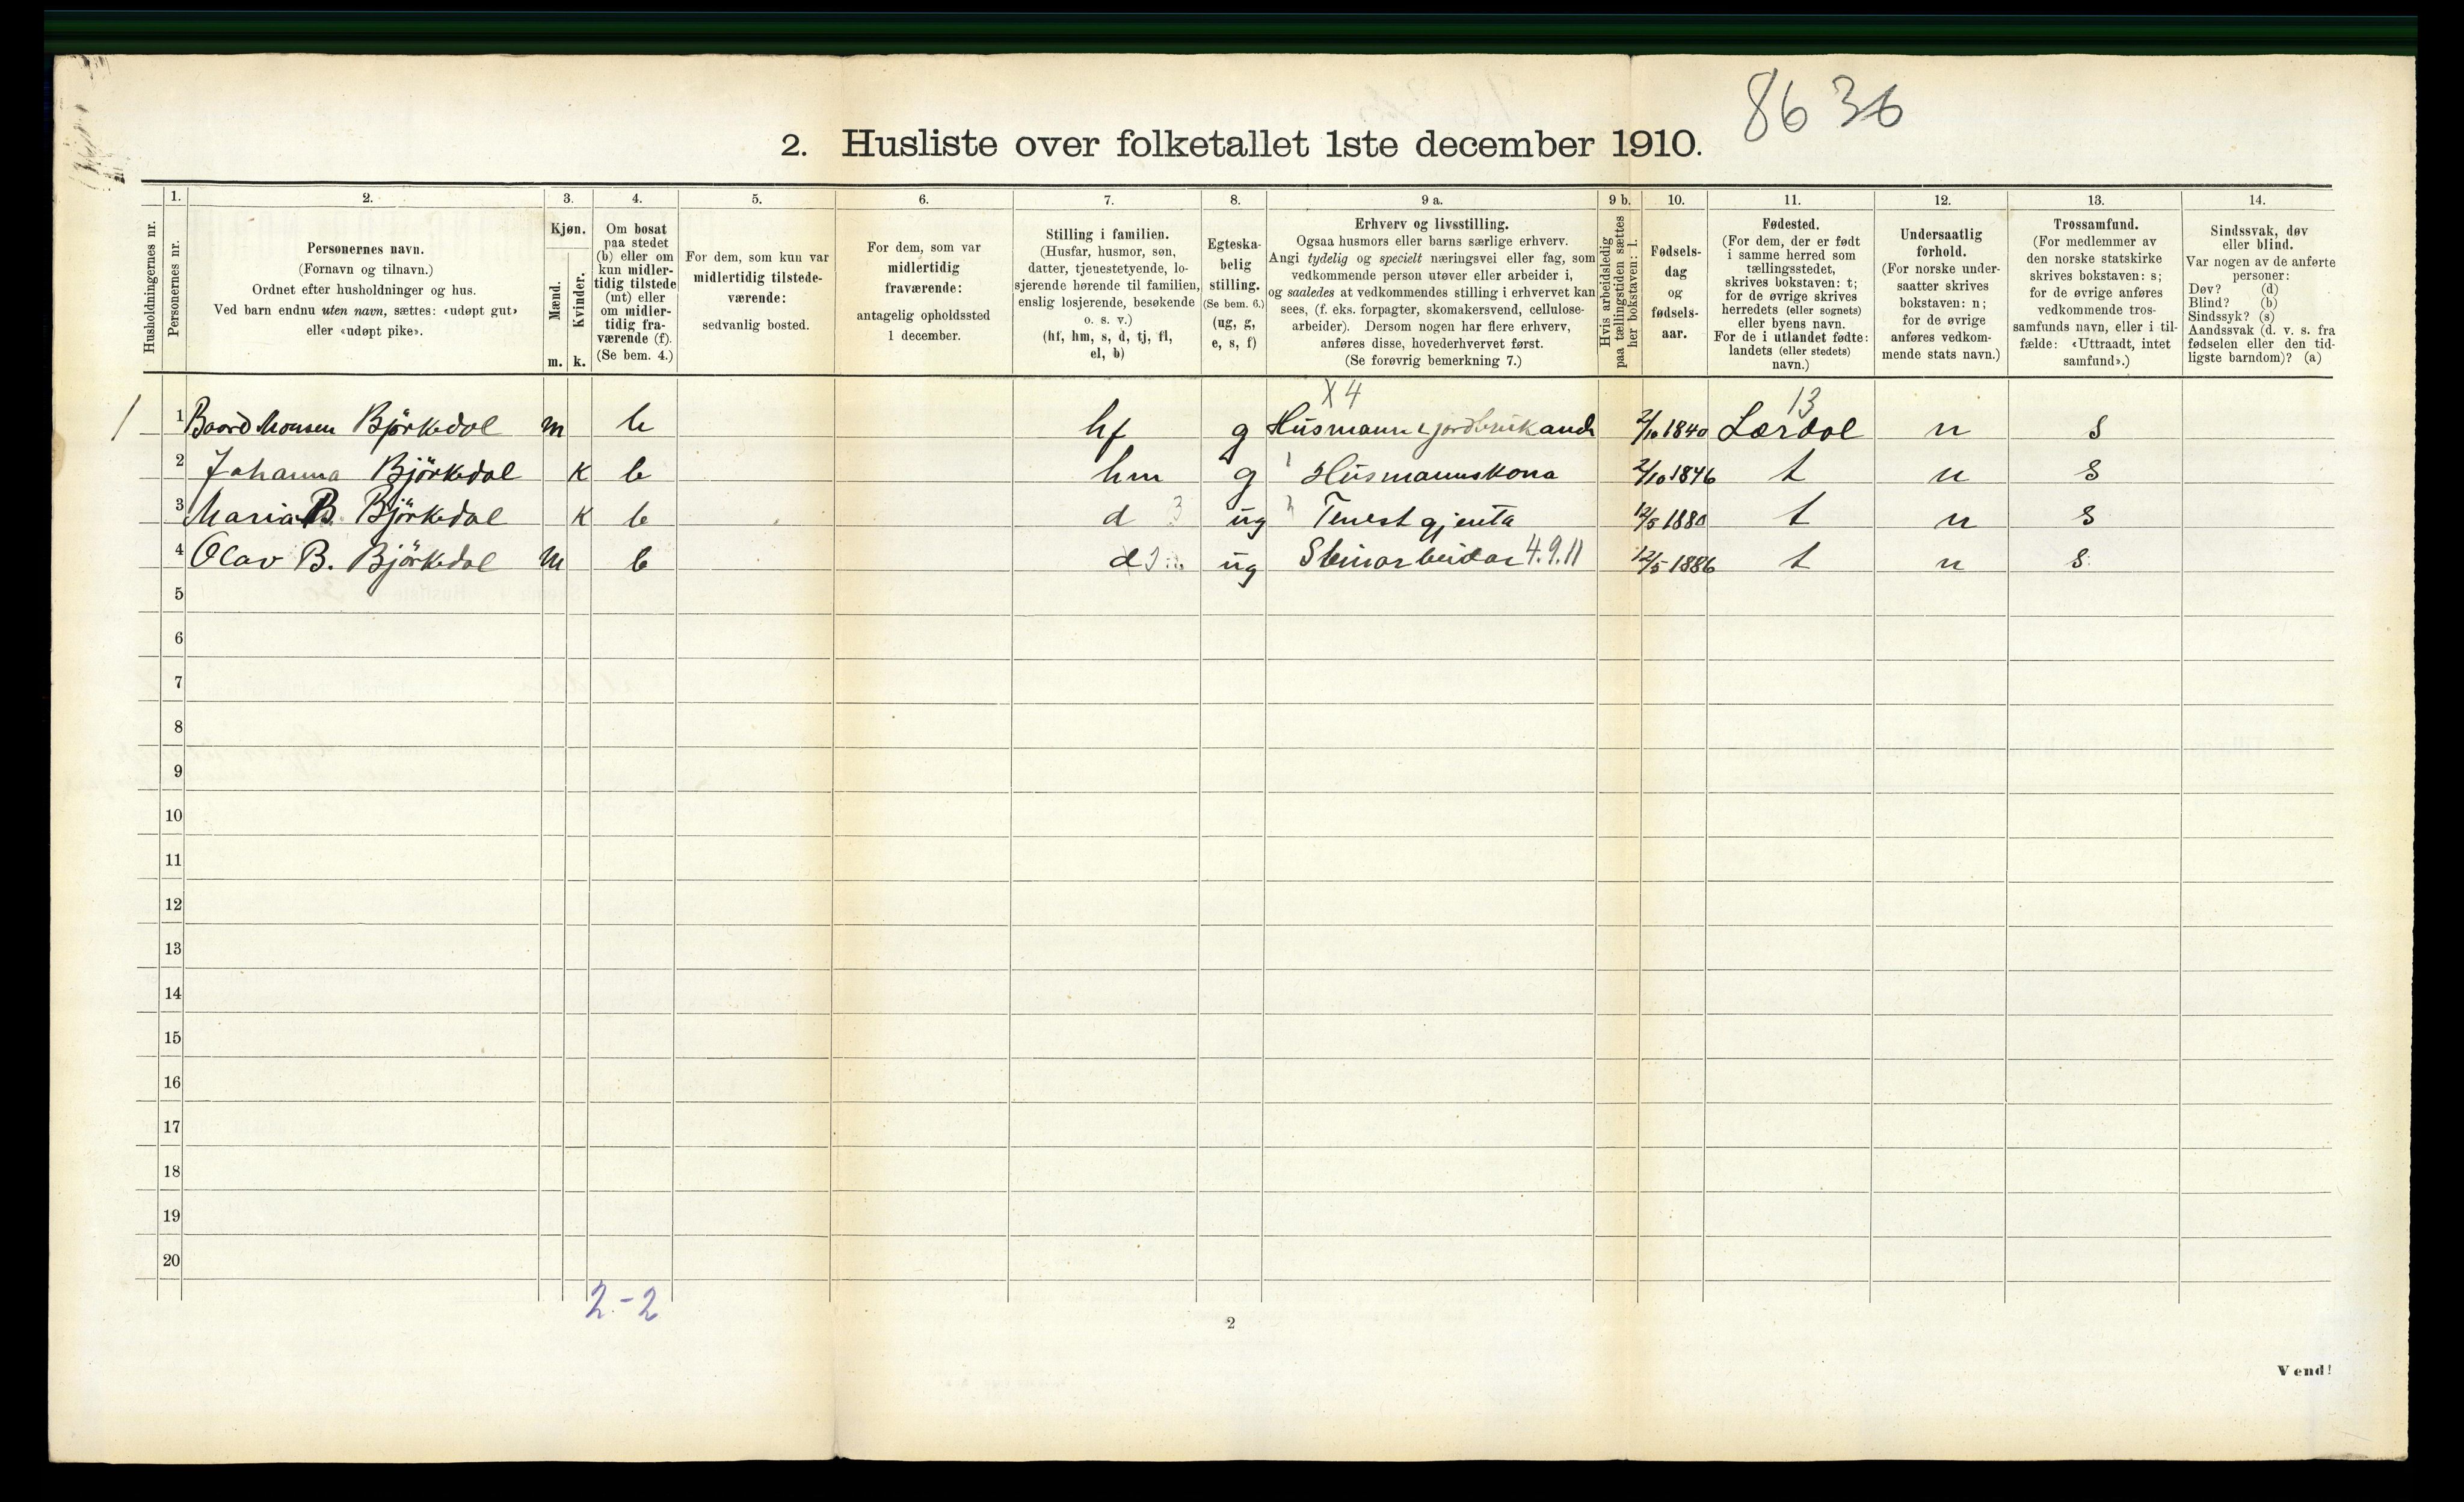 8636
2. Husliste over folketallet 1ste december 1910.
Husholdningernes nr.
1.
Personernes nr.
2.
Personernes navn.
(Fornavn og tilnavn.)
Ordnet efter husholdninger og hus.
Ved barn endnu uten navn, sættes: «udøpt gut»
eller «udøpt pike».
3.
Kjøn.
Mænd.
Kvinder.
m. k.
4.
Om bosat
paa stedet
(b) eller om
kun midler-
tidig tilstede
(mt) eller
om midler-
tidig fra-
værende (f).
(Se bem. 4.)
5.
For dem, som kun var
midlertidig tilstede-
værende:
sedvanlig bosted.
6.
For dem, som var
midlertidig
fraværende:
antagelig opholdssted
1 december.
7.
Stilling i familien.
(Husfar, husmor, søn,
datter, tjenestetyende, lo-
sjerende hørende til familien,
enslig losjerende, besøkende
o. s. v.)
(hf, hm, s, d, tj, fl,
el, b)
8.
Egteska-
belig
stilling.
(Se bem. 6.)
(ug, g,
e, s, f)
9 a.
Erhverv og livsstilling.
Ogsaa husmors eller barns særlige erhverv.
Angi tydelig og specielt næringsvei eller fag, som
vedkommende person utøver eller arbeider i,
og saaledes at vedkommendes stilling i erhvervet kan
sees, (f. eks. forpagter, skomakersvend, cellulose-
arbeider). Dersom nogen har flere erhverv,
anføres disse, hovederhvervet først.
(Se forøvrig bemerkning 7.)
9 b.
Hvis arbeidsledig
paa tællingstiden sættes
her bokstaven: l.
10.
Fødsels-
dag
og
fødsels-
aar.
11.
Fødested.
(For dem, der er født
i samme herred som
tællingsstedet,
skrives bokstaven: t;
for de øvrige skrives
herredets (eller sognets)
eller byens navn.
For de i utlandet fødte:
landets (eller stedets)
navn.)
12.
Undersaatlig
forhold.
(For norske under-
saatter skrives
bokstaven: n;
for de øvrige
anføres vedkom-
mende stats navn.)
13.
Trossamfund.
(For medlemmer av
den norske statskirke
skrives bokstaven: s;
for de øvrige anføres
vedkommende tros-
samfunds navn, eller i til-
fælde: «Uttraadt, intet
samfund».)
14.
Sindssvak, døv
eller blind.
Var nogen av de anførte
personer:
Døv? (d)
Blind? (b)
Sindssyk? (s)
Aandssvak (d. v. s. fra
fødselen eller den tid-
ligste barndom)? (a)
X4 13
1 1 Baard Monsen Björkedal m b hf g Husmann jordbrukande 2/10 1840 Lærdal n s
2 Johanna Björkedal k b hm g Husmannskona 2/10 1846 t n s
3 Maria B. Björkedal k b d 3 ug Tenestgjenta 12/5 1880 t n s
4 Olav B. Björkedal m b d ug Steinarbeidar 4.9.11 12/5 1886 t n s
5
6
7
8
9
10
11
12
13
14
15
16
17
18
19
20
2-2
2
Vend!